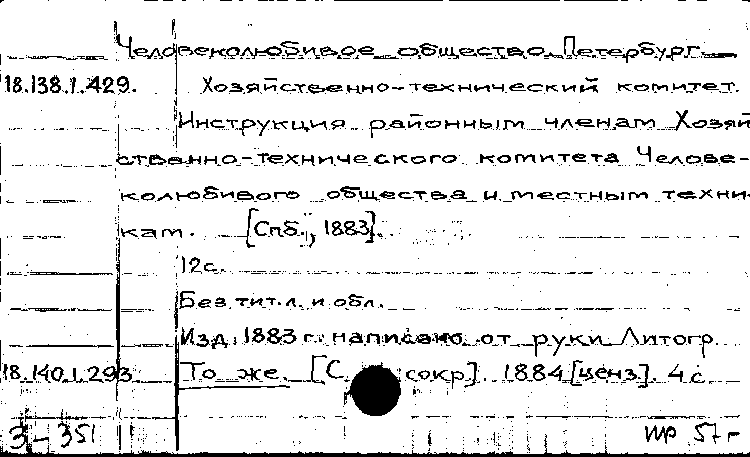 Человеколюбивое общество. Петербург.
18.138.1.429. Хозяйственно-технический комитет.
Инструкция районным членам Хозяй
ственно-технического комитета Челове-
колюбивого общества и местным техни-
кам. [Спб., 1883].
12 с.
Без тит. л. и обл.
Изд. 1883 г. написано от руки Литогр.
18.140.1.293. То же. [С сокр]. 1884 [ценз]. 4 с.
3-351 57 г